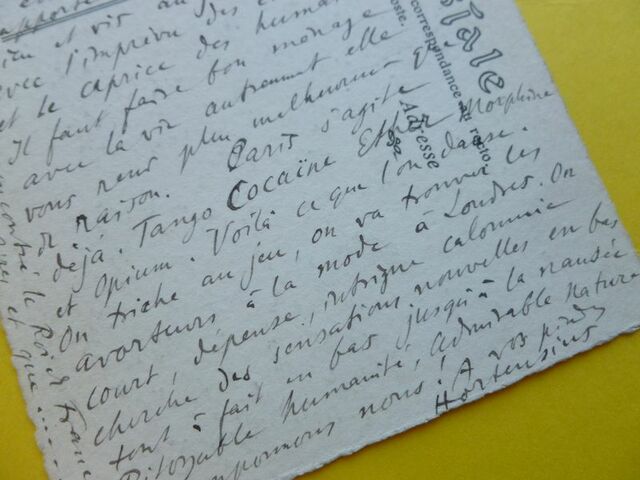 et vis au
l'imprévu des
et le caprice des huma
Il faut faire bon ménage
avec la vie autrement elle
vous rend plus malheureux q
de raison. Paris s'agite
déjà. Tango Cocaïne Ether Morphine
et Opium. Voilà ce que l'on danse.
On triche au jeu, on va trouver les
avorteurs à la mode à Londres. On
court, dépense, intrigue calomnie
cherche des sensations nouvelles en bas
tout à fait en bas jusqu'à la nausée
Pitoyable humanité, admirable nature
nous! A vos pieds
Hortensius
tale
correspondance au recto.
Adresse